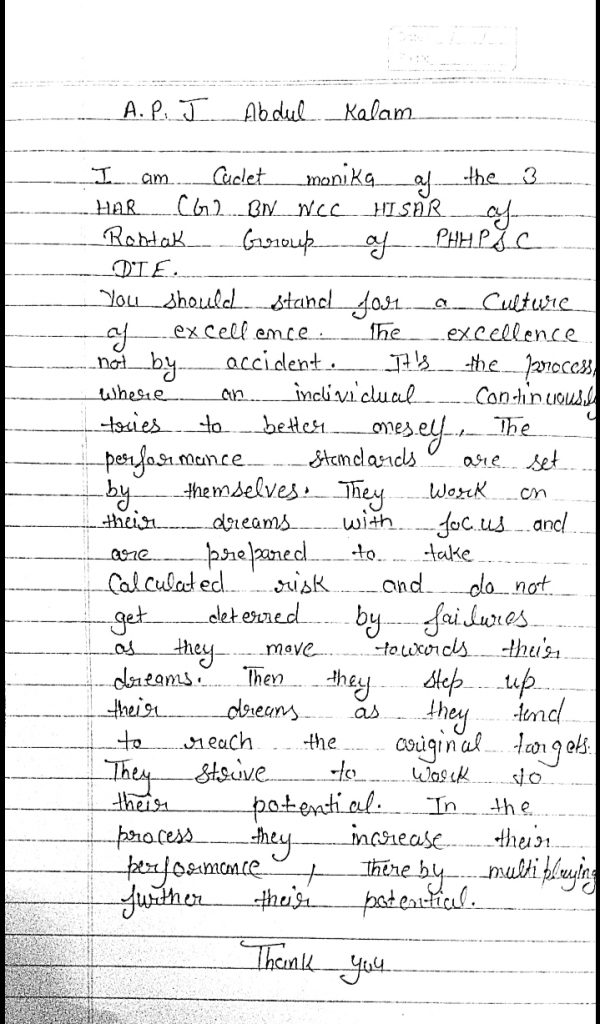 A.P. J Abdul Kalam
I am Cadet monika of the 3
HAR (G) BN NCC HISAR of
Rohtak Group of PHHP&C
DTE.
You should stand for a Culture
of excellence. The excellence
not by accident. It's the process,
where an individual Continuously
tries to better oneself, The
performance standards are set
by themselves. They work on
their dreams with focus and
are prepared to take
Calculated risk and do not
get deterred by failures
as they move towards their
dreams. Then they step up
their dreams as they tend
to reach the original targets.
They strive to work to
their potential. In the
process they increase their
performance, there by multiplaying
further their potential.
Thank you